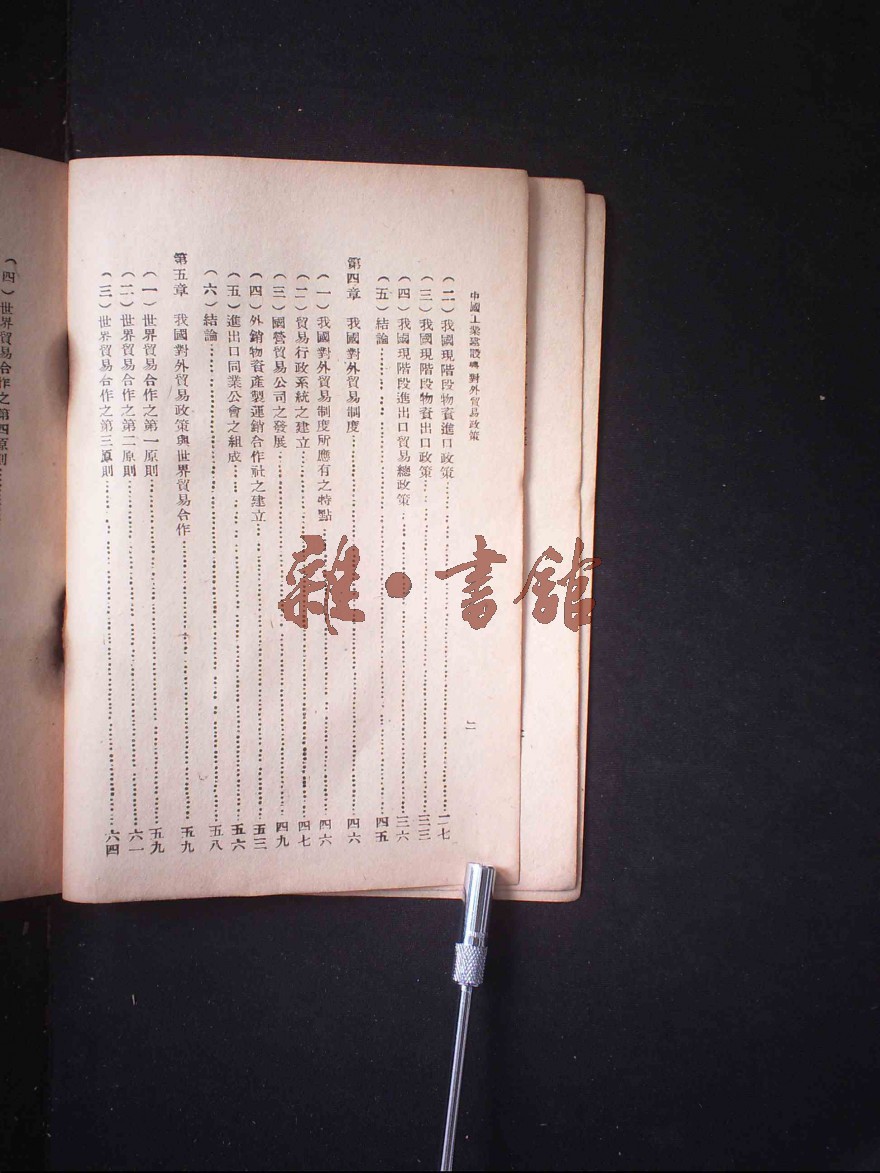 中國工業建設與對外貿易政策
二
(二)我國現階段物資進口政策……二七
(三)我國現階段物資出口政策……三三
(四)我國現階段進出口貿易總政策……三六
(五)結論……四五
第四章 我國對外貿易制度……四六
(一)我國對外貿易制度所應有之特點……四六
(二)貿易行政系統之建立……四七
(三)國營貿易公司之發展……四九
(四)外銷物資產製運銷合作社之建立……五三
(五)進出口同業公會之組成……五六
(六)結論……五八
第五章 我國對外貿易政策與世界貿易合作……五九
(一)世界貿易合作之第一原則……五九
(二)世界貿易合作之第二原則……六一
(三)世界貿易合作之第三原則……六四
(四)世界貿易合作之第四原則……
雜·書館